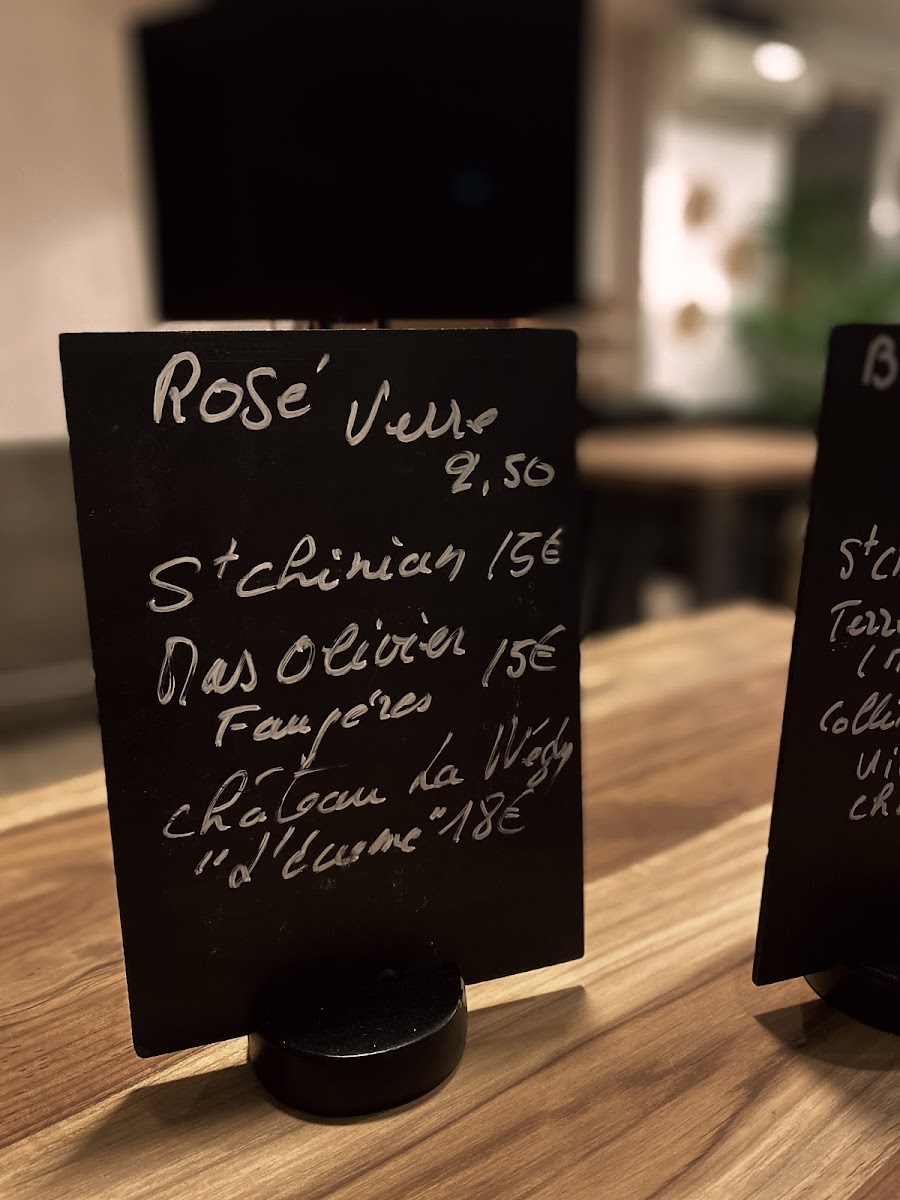 Rosé Verre
2,50
St chinian 15€
Mas Olivier 15€
Faugéres
château La
"L'écume" 18€
B
St c
Terr
(
Colli
vi
ch